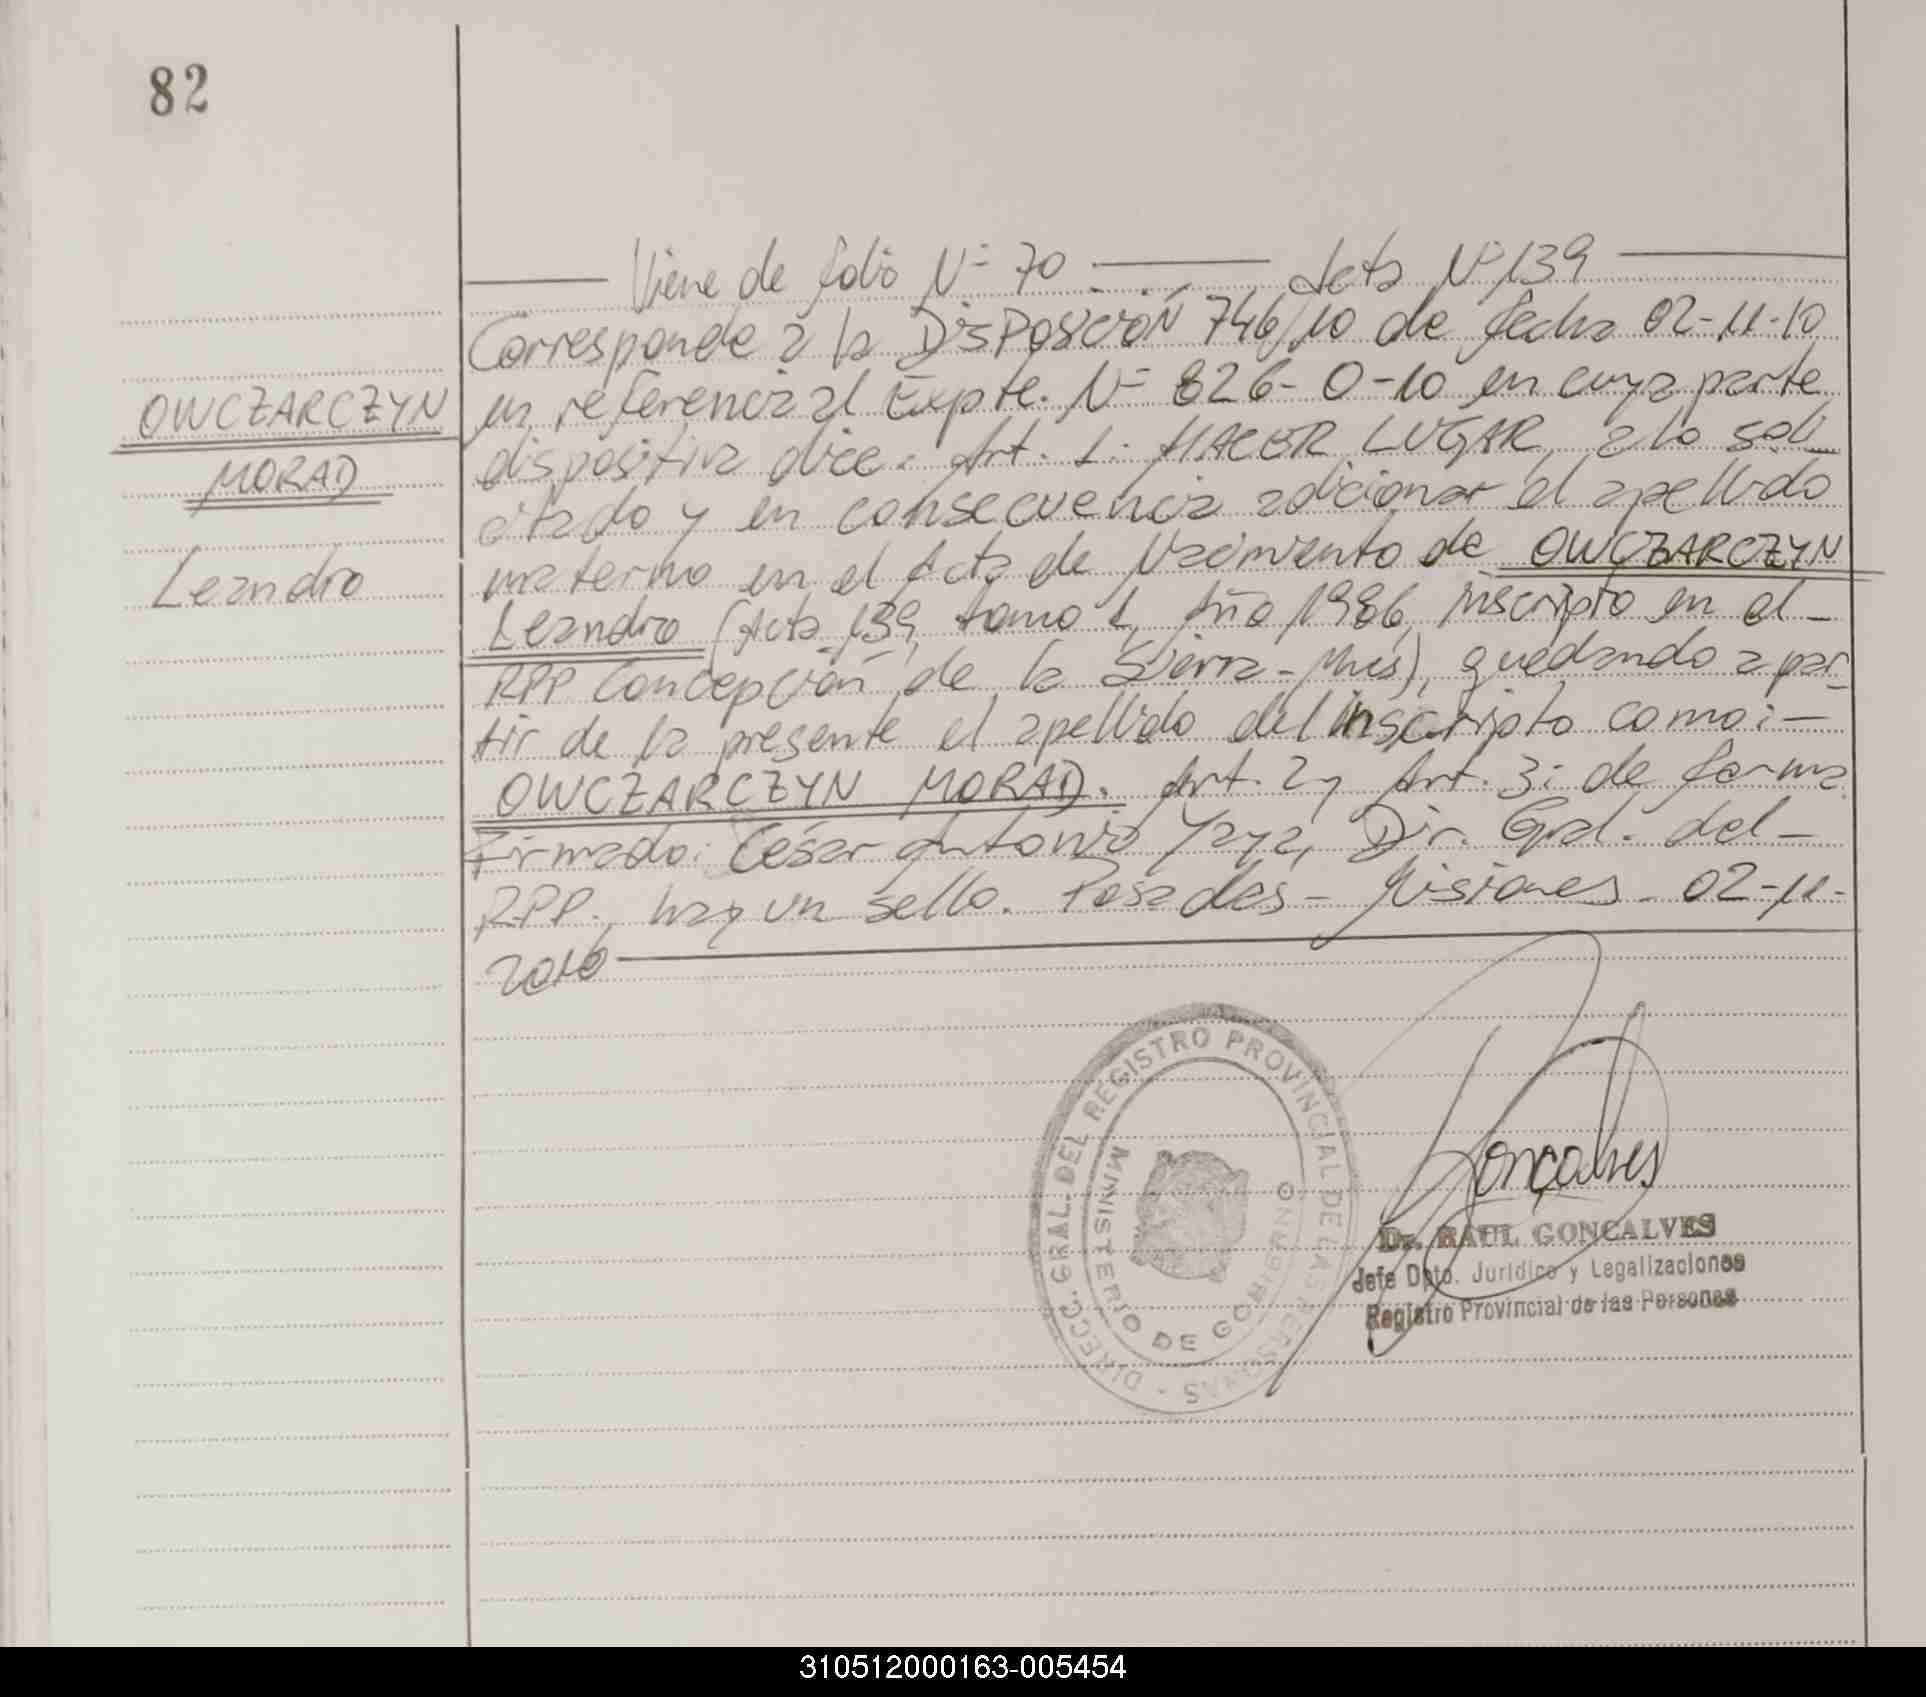 82
Viene de folio Nº 70 Acta Nº 139
Corresponde a la DISPOSICIÓN 746/10 de fecha 02-11-10
en referencia al Expte. Nº 826-O-10 en cuya parte
dispositiva dice: Art. 1: HACER LUGAR, a lo soli
citado y en consecuencia adicionar el apellido
materno en el Acta de Nacimiento de OWCZARCZYN
Leandro (Acta 139, tomo 1, Año 1986, inscripto en el -
RPP Concepción de la Sierra - Mnes), quedando a par-
tir de la presente el apellido del inscripto como: -
OWCZARCZYN MORAD. Art. 2 y Art. 3: de forma
Firmado: César Antonio Yaya, Dir. Gral. del -
R.P.P., hay un sello. Posadas - Misiones - 02-11-
2010
OWCZARCZYN
MORAD
Leandro
DIRECC. GRAL. DEL REGISTRO PROVINCIAL DE LAS PERSONAS -
MINISTERIO DE GOBIERNO
Goncalves
Dr. RAUL GONCALVES
Jefe Dpto. Jurídico y Legalizaciones
Registro Provincial de las Personas
310512000163-005454